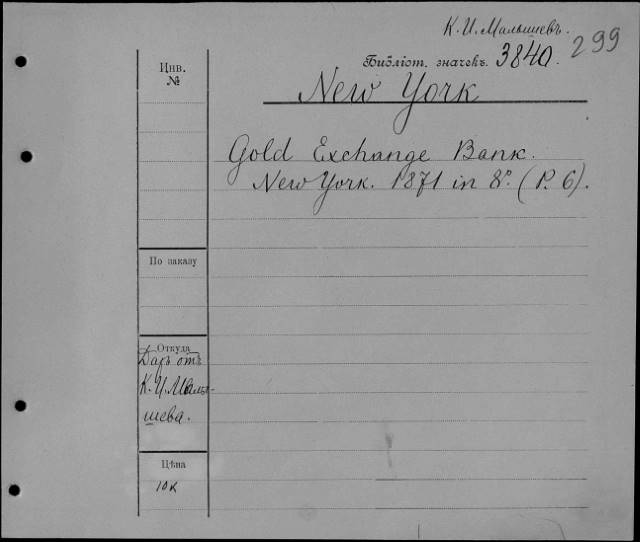 К. И. Малышевъ.
299
Библіот. значекъ. 3840.
Инв.
№
New York
Gold Exchange Bank.
New York. 1871 in 8º. (P. 6).
По заказу
Откуда
Даръ отъ
К. И. Малы-
шева.
Цѣна
10 к